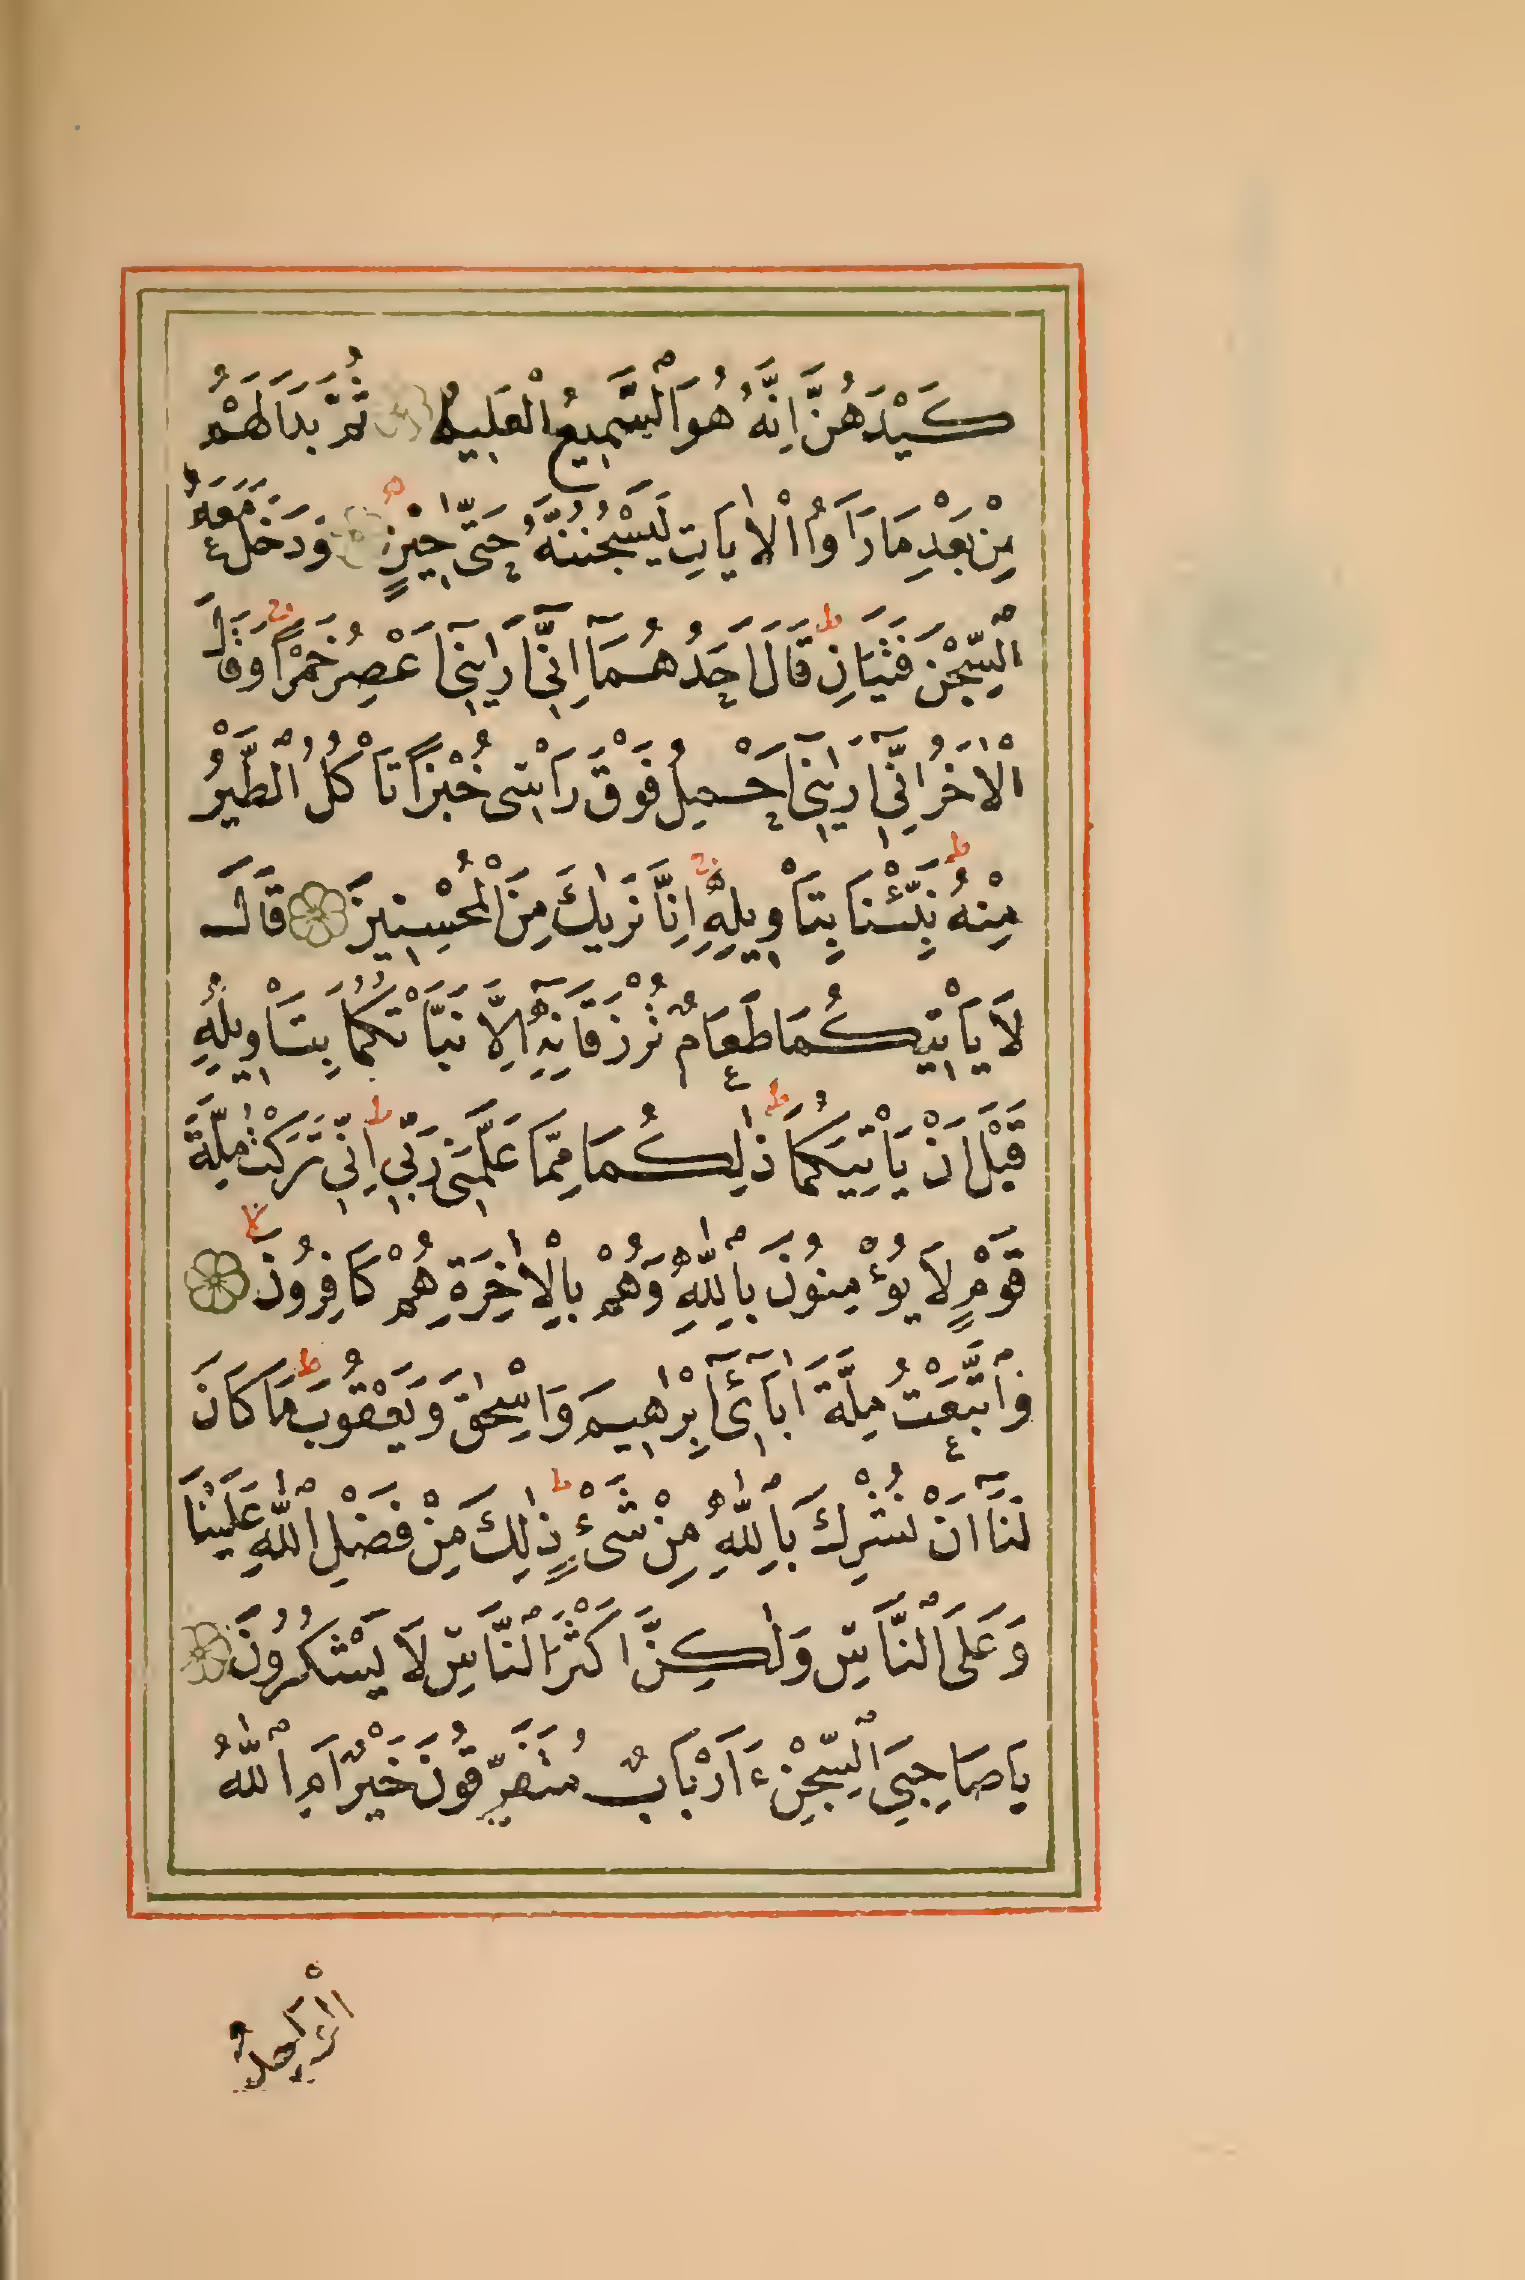 كَيْدَهُنَّ اِنَّهُ هُوَ ٱلسَّمِيعُ الْعَلِيمُ ثُمَّ بَدَا لَهُمْ
مِنْ بَعْدِ مَا رَاَوُا الْاٰيَاتِ لَيَسْجُنُنَّهُ حَتّٰى حِيْنٍ ه وَدَخَلَ مَعَهُ
ٱلسِّجْنَ فَتَيَانِ ط قَالَ اَحَدُهُمَآ اِنِّىٓ اَرٰىنِىٓ اَعْصِرُ خَمْرًا ج وَقَالَ
الْاٰخَرُ اِنِّىٓ اَرٰىنِىٓ اَحْمِلُ فَوْقَ رَاْسِى خُبْزًا تَاْكُلُ ٱلطَّيْرُ
مِنْهُ ط نَبِّئْنَا بِتَاْوِيلِهِ ج اِنَّا نَرٰيكَ مِنَ الْمُحْسِنِينَ قَالَ
لَا يَاْتِيكُمَا طَعَامٌ تُرْزَقَانِهِٓ اِلَّا نَبَّاْتُكُمَا بِتَاْوِيلِهِ
قَبْلَ اَنْ يَاْتِيَكُمَا ط ذٰلِكُمَا مِمَّا عَلَّمَنِى رَبِّى ط اِنِّى تَرَكْتُ مِلَّةَ
قَوْمٍ لَا يُؤْمِنُونَ بِٱللّٰهِ وَهُمْ بِالْاٰخِرَةِ هُمْ كَافِرُونَ لا
وَٱتَّبَعْتُ مِلَّةَ اٰبَآئِىٓ اِبْرٰهِيمَ وَاِسْحٰقَ وَيَعْقُوبَ ط مَا كَانَ
لَنَآ اَنْ نُشْرِكَ بِٱللّٰهِ مِنْ شَىْءٍ ط ذٰلِكَ مِنْ فَضْلِ ٱللّٰهِ عَلَيْنَا
وَعَلَى ٱلنَّاسِ وَلٰكِنَّ اَكْثَرَ ٱلنَّاسِ لَا يَشْكُرُونَ
يَا صَاحِبَىِ ٱلسِّجْنِ ءَاَرْبَابٌ مُتَفَرِّقُونَ خَيْرٌ اَمِ ٱللّٰهُ
الْوَاحِدُ